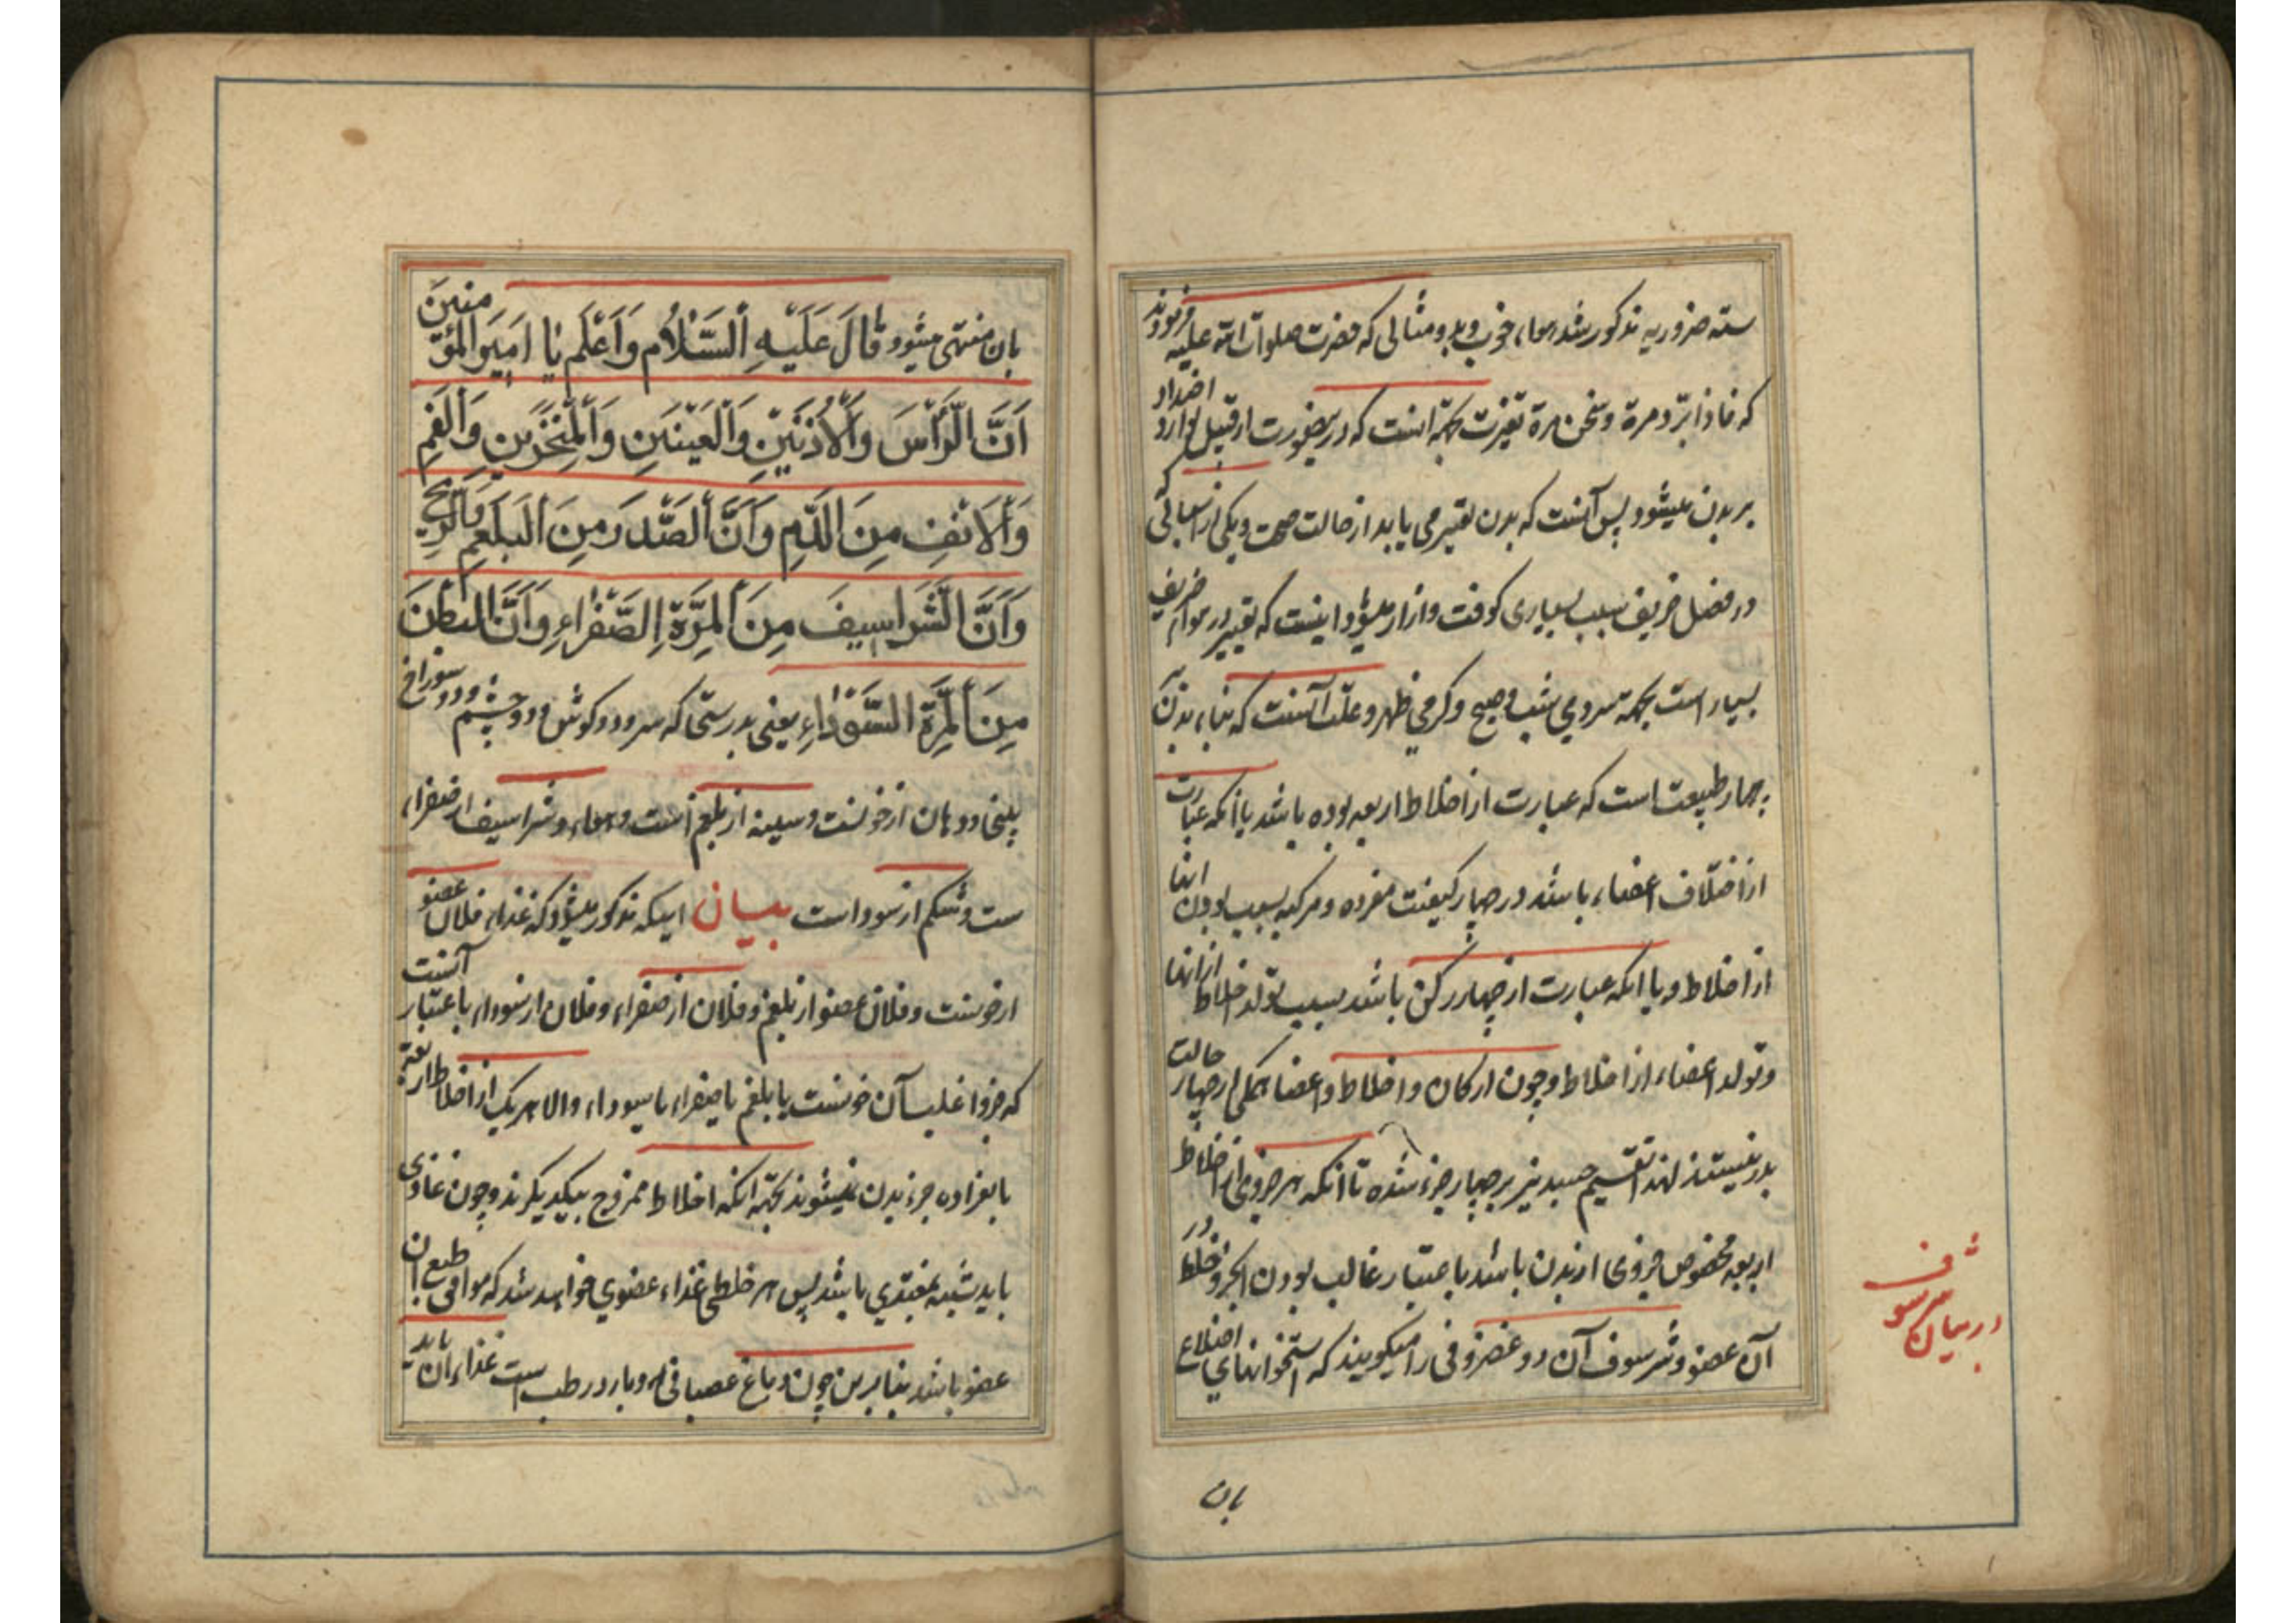 سته ضروریه مذکور شد هواء خوب و بد و مثالی که حضرت صلوات الله علیه فرمودند
که فاذا برد مرة و سخن مرة تغیرت بجهة اینست که درینصورت از قبیل توارد اضداد
بر بدن میشود پس آنست که بدن تغییر می یابد از حالت صحت و یکی از اسبابی که
در فصل خریف سبب بسیاری کوفت و ازار میشود اینست که تغییر در هواء خریف
بسیار است بجهة سردی شب و صبح و کرمی ظهر و علت آنست که بناء بدن بر
چهار طبیعت است که عبارت از اخلاط اربعه بوده باشد یا انکه عبارت
از اختلاف اعضاء باشد در چهار کیفیت مفرده و مرکبه بسبب بودن انها
از اخلاط و یا انکه عبارت از چهار رکن باشد بسبب تولد اخلاط از انها
و تولد اعضاء از اخلاط و چون ارکان و اخلاط و اعضا همکی از چهار حالت
بدر نیستند لهذا تقسیم جسد نیز بر چهار جزء شده تا انکه هر جزوی از اخلاط
اربعه مخصوص جزوی از بدن باشد باعتبار غالب بودن انجزو خلط در
آن عضو و شرسوف آن دو غضروفی را میکویند که استخوانهای اضلاع
در بیان شرسوف
بان
بان منتهی میشود قَالَ عَلَيْهِ اَلسَّلَامُ وَاَعْلَم يَا اَمِيرَ المُؤمِنينَ
اَنَّ الرَّأْسَ وَالْاُذُنَيْنِ وَالْعَيْنَيْنِ وَالْمِنْخَرَيْنِ وَالْفَمِ
وَالْاَنْفِ مِنَ الدَّمِ وَاَنَّ الصَّدْرَ مِنَ الْبَلْغَمِ وَالرِّيحِ
وَاَنَّ الشَّرَاسِيفَ مِنَ الْمِرَّةِ الصَّفْرَاءِ وَاَنَّ البَطْنَ
مِنَ الْمِرَّةِ السَّوْدَاءِ یعنی بدرستی که سر و دو کوش و دو چشم و دو سوراخ
بینی و دهان از خونست و سینه از بلغم است و هواء و شراسیف از صفراء
ست و شکم از سوداست بیان اینکه مذکور میشود که غذاء فلان عضو
از خونست و فلان عضو از بلغم و فلان از صفراء و فلان از سوداء باعتبار آنست
که جزو اغلب آن خونست یا بلغم یا صفراء یا سوداء و الا هریک از اخلاط اربعه
بانفراده جزء بدن نمیشوند بجهة انکه اخلاط ممزوج بیکدیکرند و چون غاذی
باید شبیه بمغتذی باشد پس هر خلطی غذاء عضوی خواهد شد که موافق طبع ان
عضو باشد بنابرین چون دماغ عصبانی و بارد رطب است غذاء ان باید